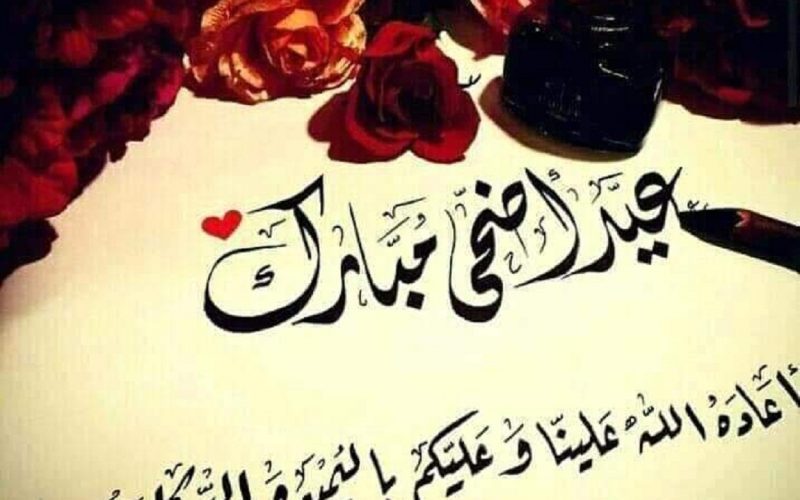 عيد أضحى مُبَّارك
أعَادَهُ اللّهُ عَلينّا وَ عَليَكُم باليُمن و